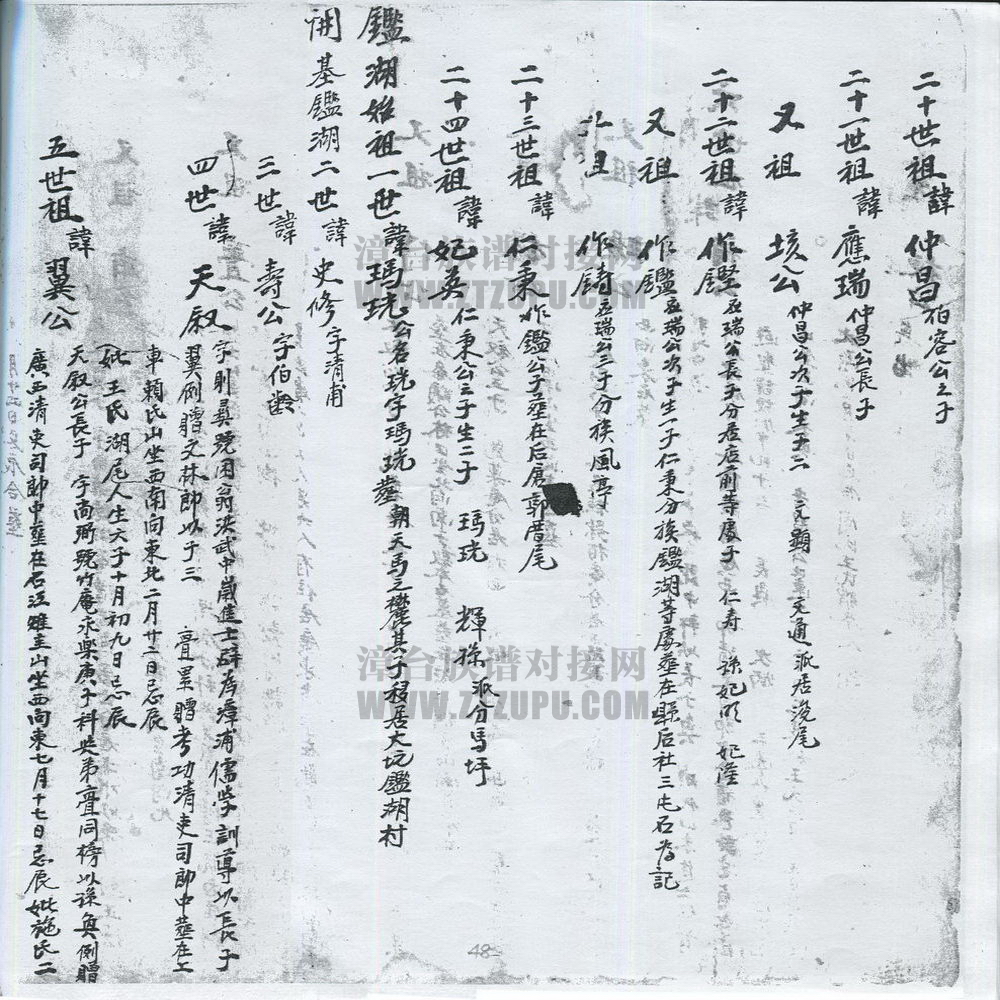 二十世祖諱 仲昌 伯容公之子
二十一世祖諱 應瑞 仲昌公長子
又祖 垓公 仲昌公次子生子二 文顯 文通 派居後尾
二十二世祖諱 作鏗 應瑞公長子分居店前等處子 仁寿 孫妃 妃隆
又祖 作鑑 應瑞公次子生一子仁秉分族鑑湖等處葬在縣后社三屯石為記
祖 作鑄 應瑞公三子分族風亭
二十三世祖諱 仁秉 作鑑公子葬在后 郭厝尾
二十四世祖諱 妃英 仁秉公之子生二子 瑪珖 輝孫 派分馬坪
鑑湖始祖一世諱瑪珖 公名珖字瑪珖葬朝天馬三欉其子移居大坑鑑湖村
開基鑑湖二世諱 史修 字清甫
三世諱 壽公 字伯齡
四世諱 天敘 字則彝號困翁洪武中歲進士辟彰浦儒学訓導以長子
翼例贈文林郎以子三 亹累贈考功清吏司郎中葬在上
車賴氏山坐西南向東北二月廿二日忌辰
妣王氏湖尾人生六子十月初九日忌辰
五世祖諱 翼公 天敘公長子 字尚 號竹庵永樂庚子科與弟亹同榜以孫奐例贈
廣西清吏司郎中葬在石江 山坐西向東七月十七日忌辰妣施氏二
-48-
漳台族谱对接网
WWW.ZTZUPU.COM
漳台族谱对接网
WWW.ZTZUPU.COM